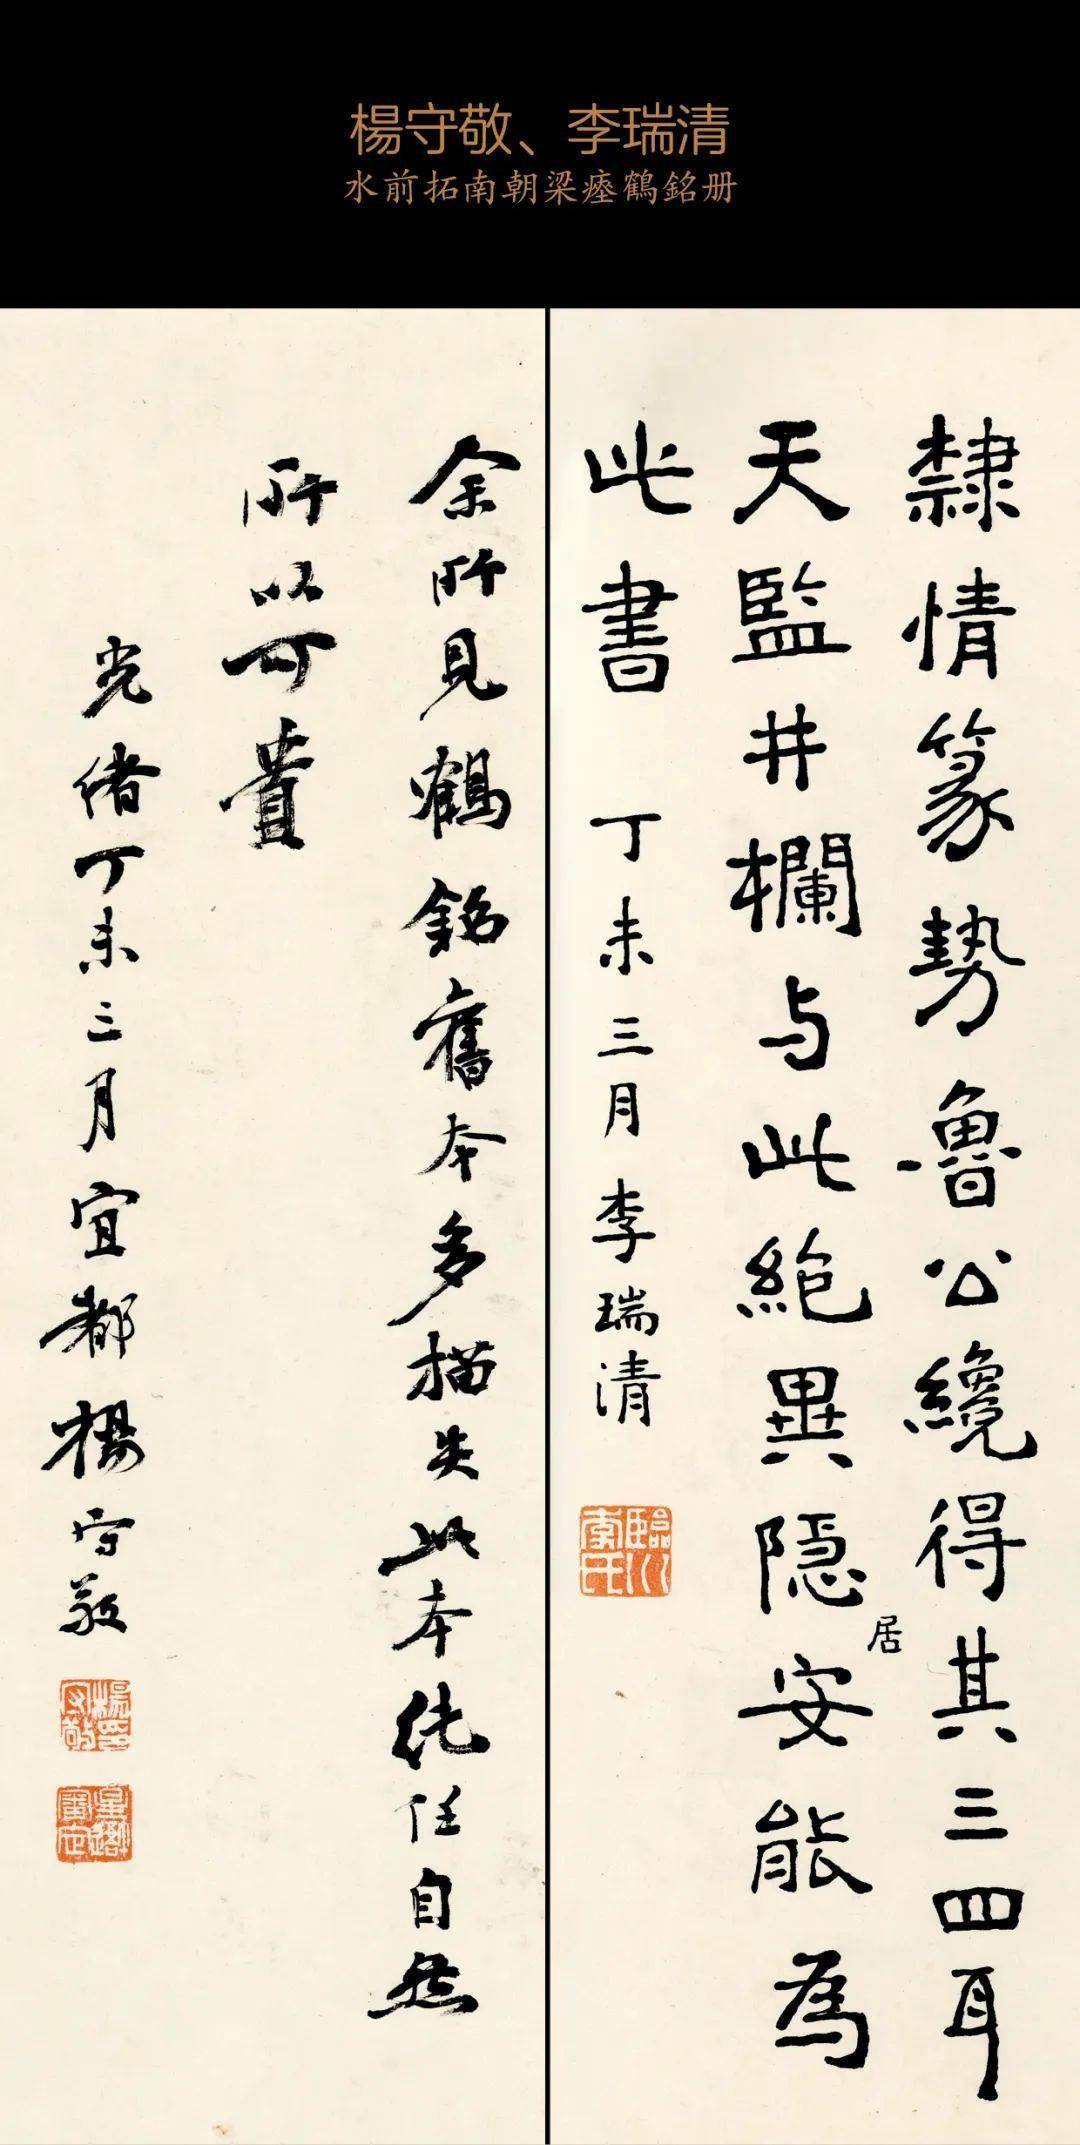 楊守敬、李瑞清
水前拓南朝梁瘞鶴銘册
隸情篆勢魯公纔得其三四耳
天監井欄与此絶異隱居安能為
此書 丁未三月李瑞清
臨川李氏
余所見鶴銘舊本多描失此本純任自然
所以可貴
光緒丁未三月宜都楊守敬
楊守敬印
星吾審定